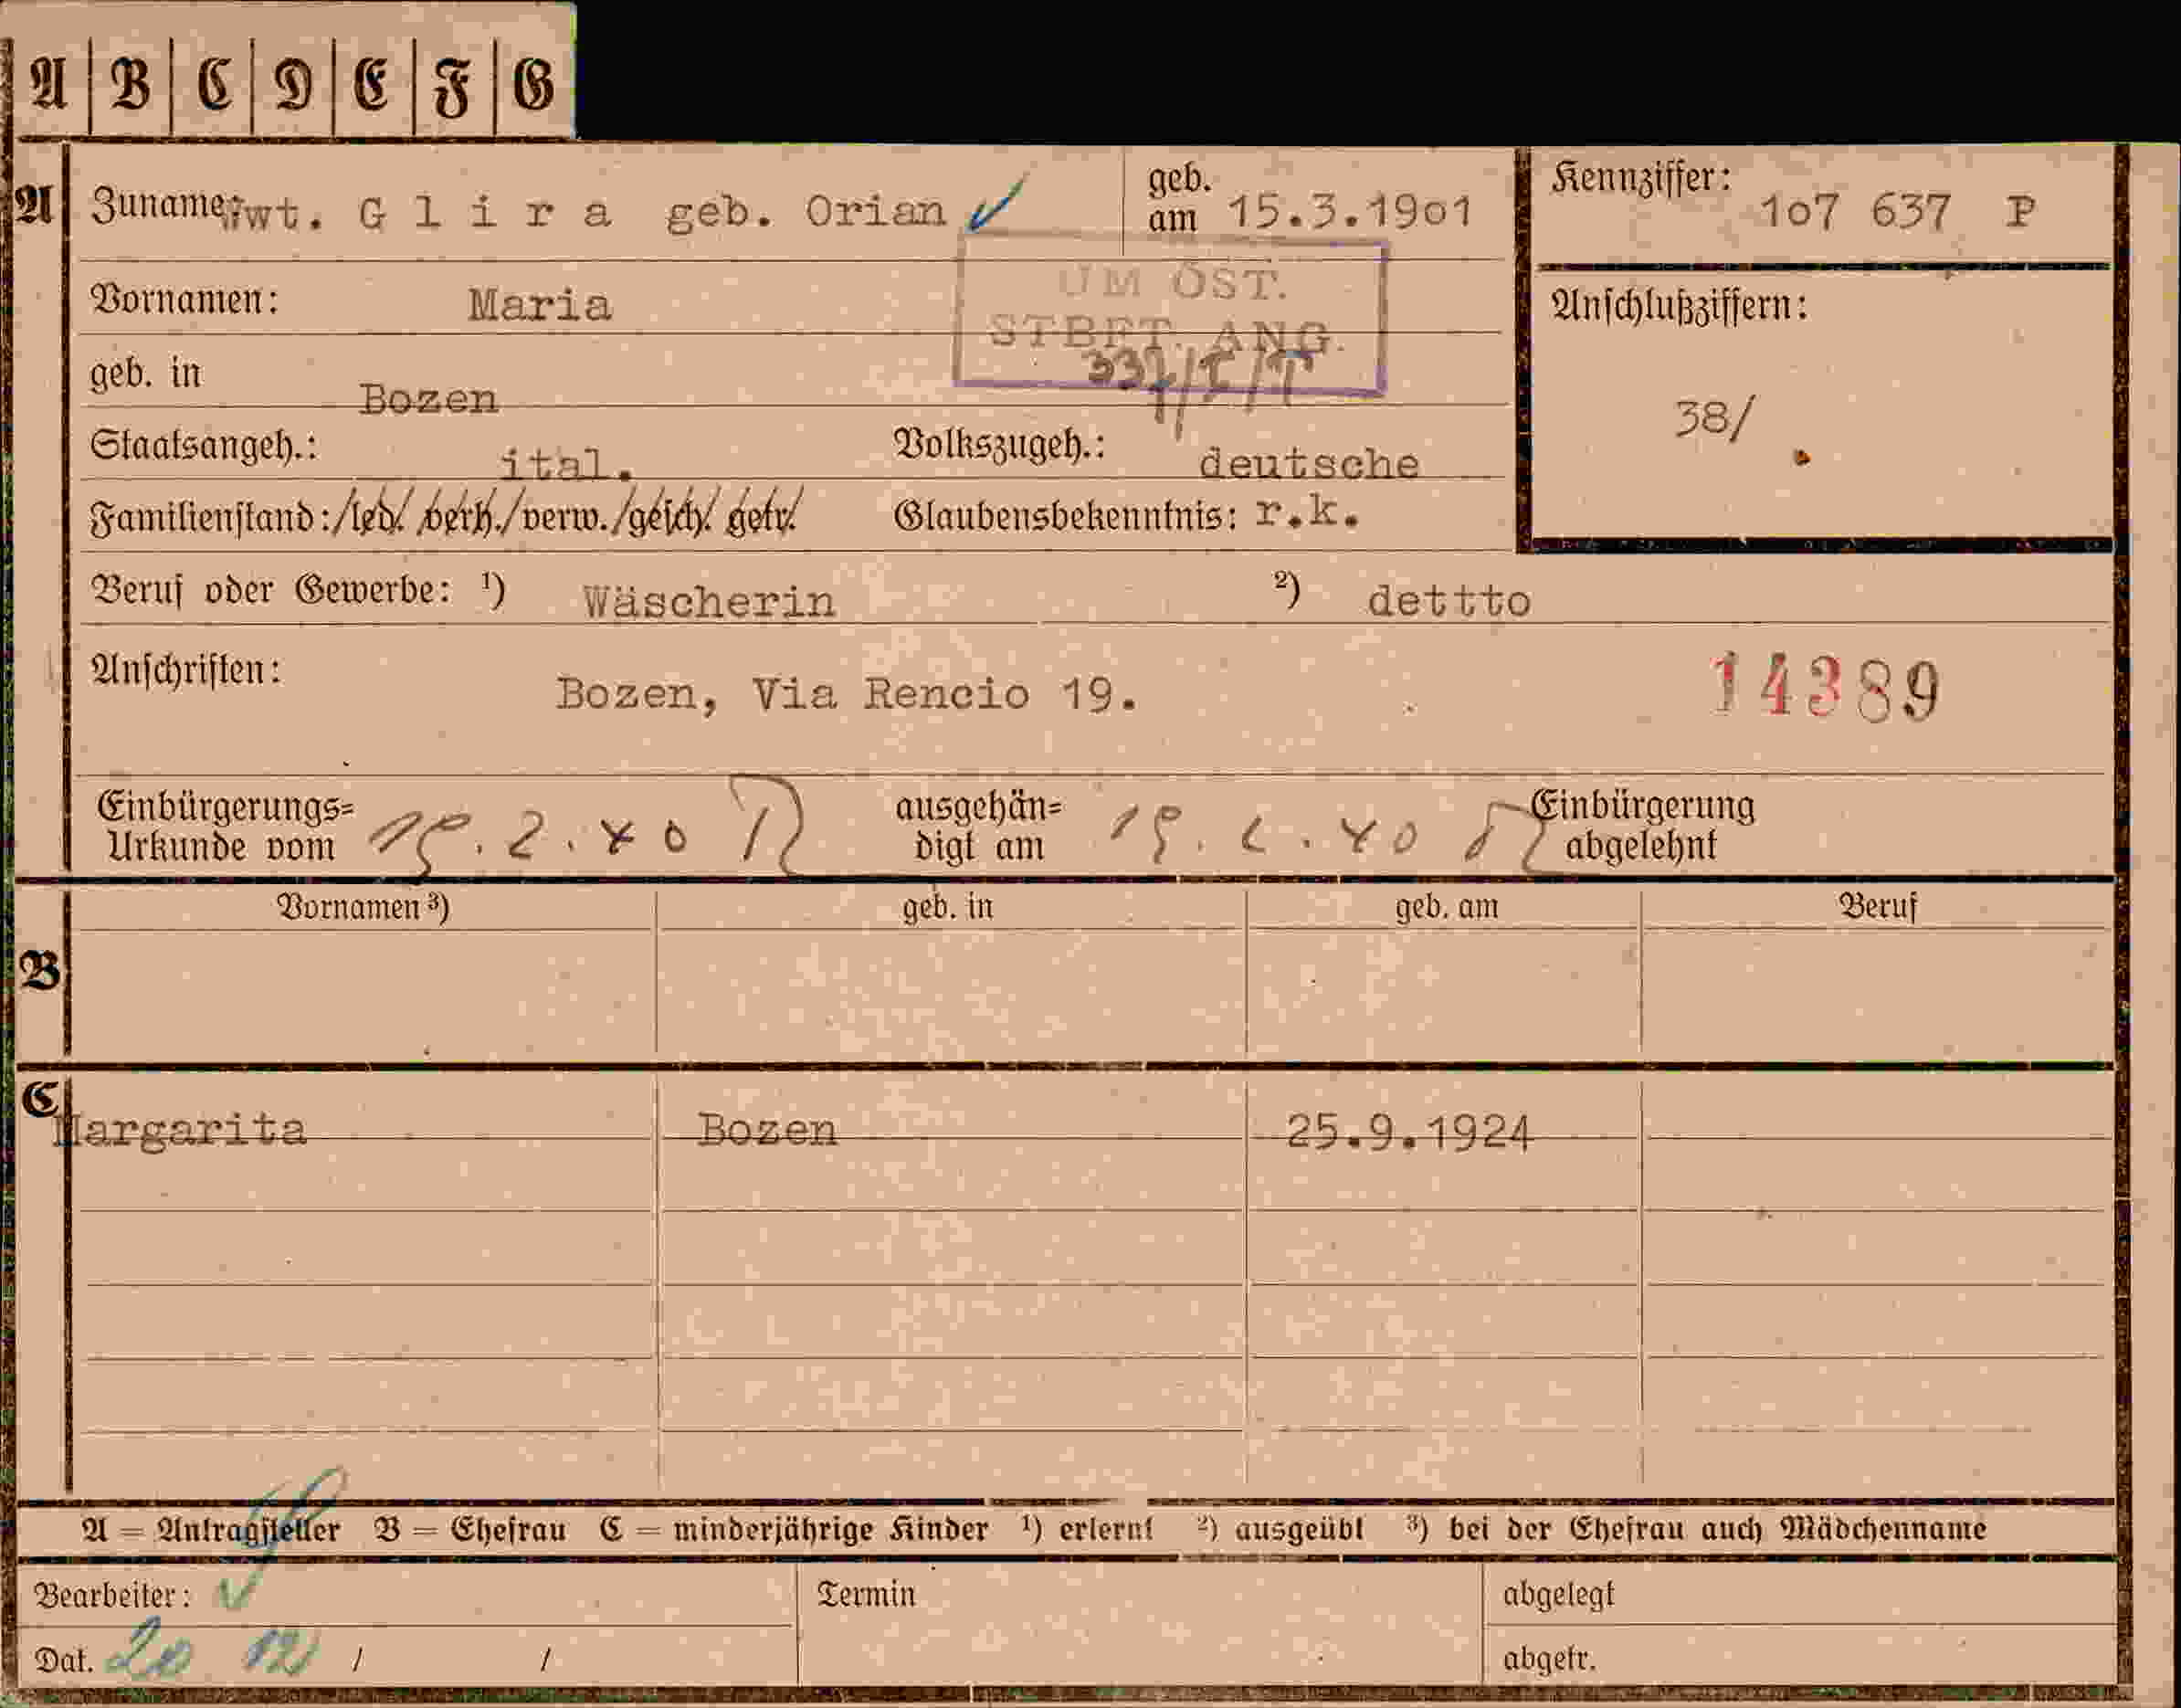 A B C D E F G
A
Zuname: Wwt. G l i r a geb. Orian
geb. am 15.3.1901
Kennziffer: 107 637 P
UM ÖST.
Vornamen: Maria
STBFT. ANG.
Anschlußziffern:
geb. in Bozen
38/
Staatsangeh.: ital.
Volkszugeh.: deutsche
Familienstand: led. verh. verw. gesch. getr.
Glaubensbekenntnis: r.k.
Beruf oder Gewerbe: ¹) Wäscherin ²) dettto
Anschriften: Bozen, Via Rencio 19.
14389
Einbürgerungs=
Urkunde vom 19.2.40
ausgehän=
digt am 19.2.40
Einbürgerung
abgelehnt
Vornamen ³) geb. in geb. am Beruf
B
C
Margarita Bozen 25.9.1924
A = Antragsteller B = Ehefrau C = minderjährige Kinder ¹) erlernt ²) ausgeübt ³) bei der Ehefrau auch Mädchenname
Bearbeiter:
Termin
abgelegt
Dat. 20 12 / /
abgetr.